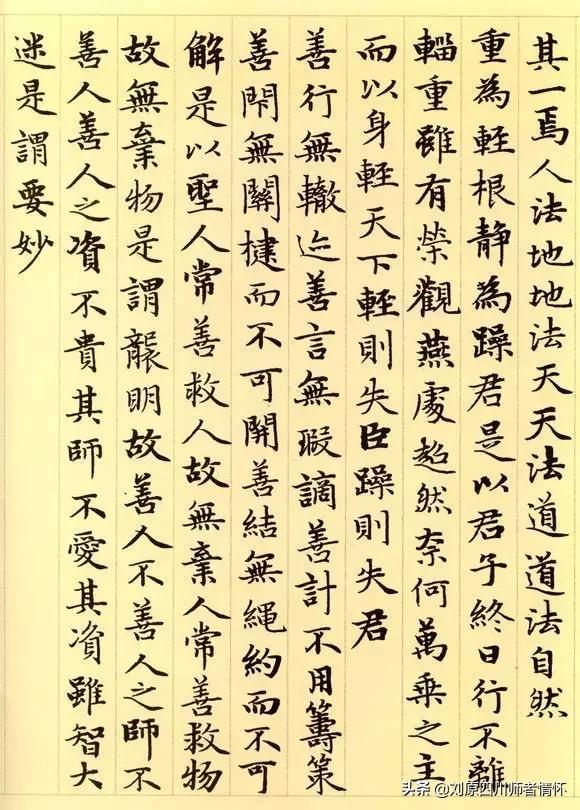 其一焉人法地地法天天法道道法自然
重為輕根静為躁君是以君子終日行不離
輜重雖有榮觀燕處超然奈何萬乘之主
而以身輕天下輕則失臣躁則失君
善行無轍迹善言無瑕謫善計不用籌策
善閇無關揵而不可開善結無繩約而不可
解是以聖人常善救人故無棄人常善救物
故無棄物是謂襲明故善人不善人之師不
善人善人之資不貴其師不愛其資雖智大
迷是謂要妙
头条 @刘原四川师者情怀